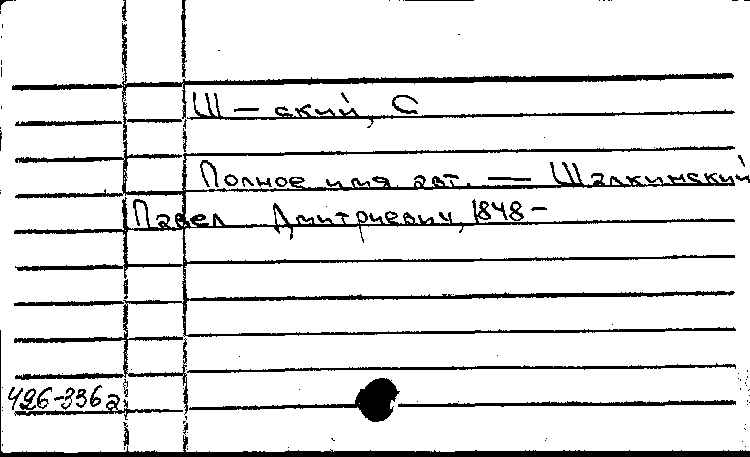 Ш – ский, С
Полное имя авт. — Шалкинский
Павел Дмитриевич, 1848 –
496-336а